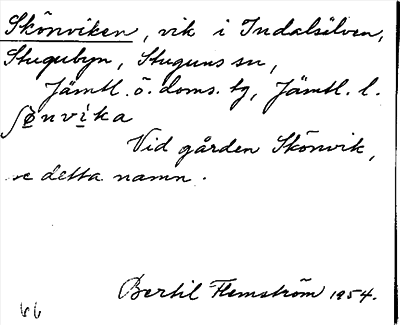 Skönviken, vik i Indalsälven,
Stugubyn, Stuguns sn,
Jämtl. ö. doms. tg, Jämtl. l.
ʃø̱nvi̱ka
Vid gården Skönvik,
se detta namn.
Bertil Flemström 1954.
66